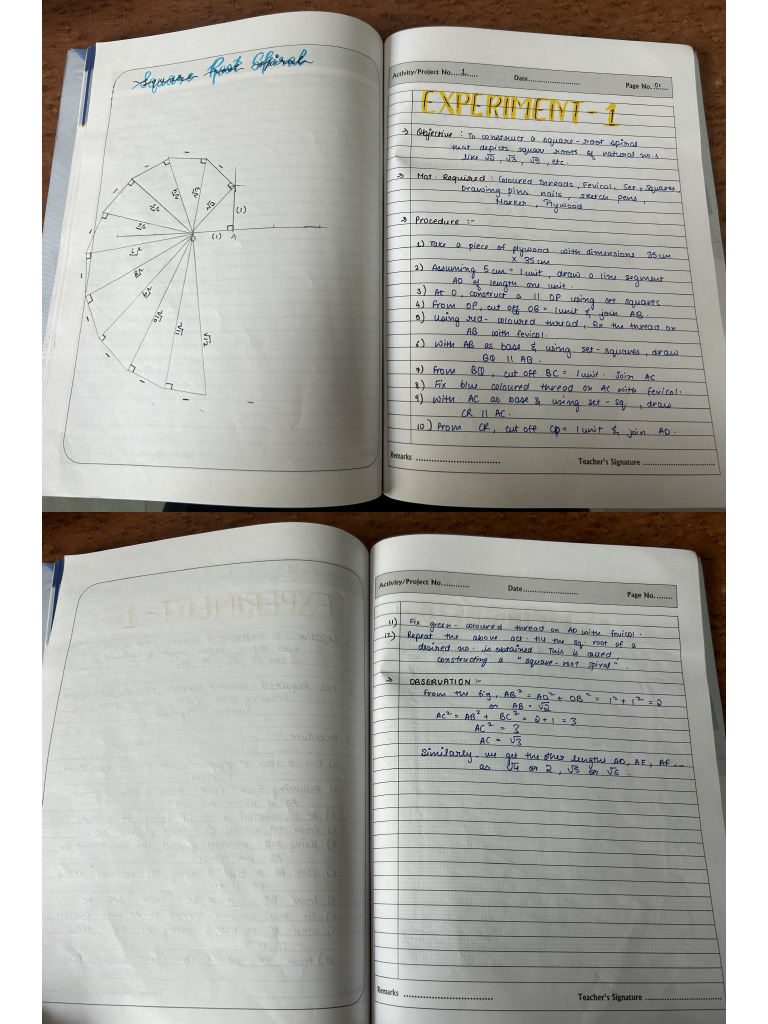 Square Root Spiral
√2
√3
√4
√5
√6
√7
√8
√9
√10
√11
√12
(1)
(1)
O
A
Activity/Project No....1......
Date......................
Page No. 01
EXPERIMENT-1
→ Objective : To construct a square-root spiral
that depicts square roots of natural no.s
like √2, √3, √5, etc.
→ Mat. Required : Coloured Threads, Fevicol, Set-Squares,
Drawing pins nails, sketch pens,
Marker, Plywood
→ Procedure :-
1) Take a piece of plywood with dimensions 35cm
x 35cm
2) Assuming 5cm = 1 unit, draw a line segment
AO of length one unit.
3) At O, construct a || OP using set squares
4) From OP, cut off OB = 1 unit & join AB.
5) Using red-coloured thread, fix the thread on
AB with fevicol.
6) With AB as base & using set-squares, draw
BQ || AB.
7) From BQ, cut off BC = 1 unit. Join AC
8) Fix blue coloured thread on AC with fevicol.
9) With AC as base & using set-sq., draw
CR || AC.
10) From CR, cut off CD = 1 unit & join AD.
Remarks ................................
Teacher's Signature ...........................
Activity/Project No...........
Date......................
Page No........
11) Fix green-coloured thread on AD with fevicol.
12) Repeat the above act. till the sq. root of a
desired no. is obtained. This is called
constructing a "square-root spiral".
→ OBSERVATION :-
From the fig, AB² = AO² + OB² = 1² + 1² = 2
or AB = √2
AC² = AB² + BC² = 2+1 = 3
AC² = 3
AC = √3
Similarly, we get the other lengths AD, AE, AF ...
as √4 or 2, √5 or √6.
Remarks ................................
Teacher's Signature ...........................